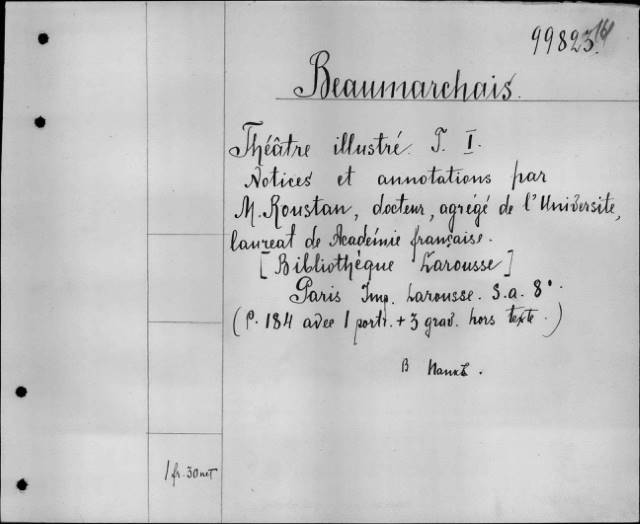 99823
Beaumarchais.
Théâtre illustré. T. I.
Notices et annotations par
M. Roustan, docteur, agrégé de l'Université,
laureat de Académie française.
[Bibliothèque Larousse]
Paris Imp. Larousse. S.a. 8°.
(P. 184 avec 1 portr. + 3 grav. hors texte.)
B
1 fr. 30 net